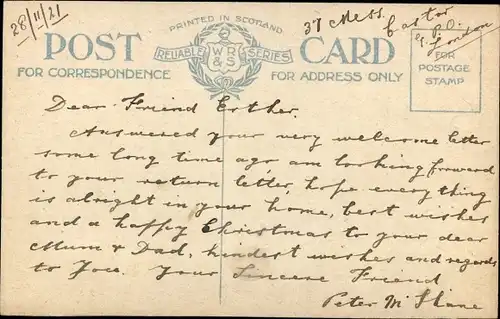 28/11/21
PRINTED IN SCOTLAND
37 Mess.
Castor
G.P.O.
London
POST CARD
RELIABLE WR&S SERIES
FOR CORRESPONDENCE
FOR ADDRESS ONLY
FOR
POSTAGE
STAMP
Dear Friend Esther.
Answered your very welcome letter
some long time ago am looking froward
to your return letter, hope everything
is alright in your home, best wishes
and a happy Christmas to your dear
Mum & Dad, kindest wishes and regards
to You. Your Sincere Friend
Peter McShane